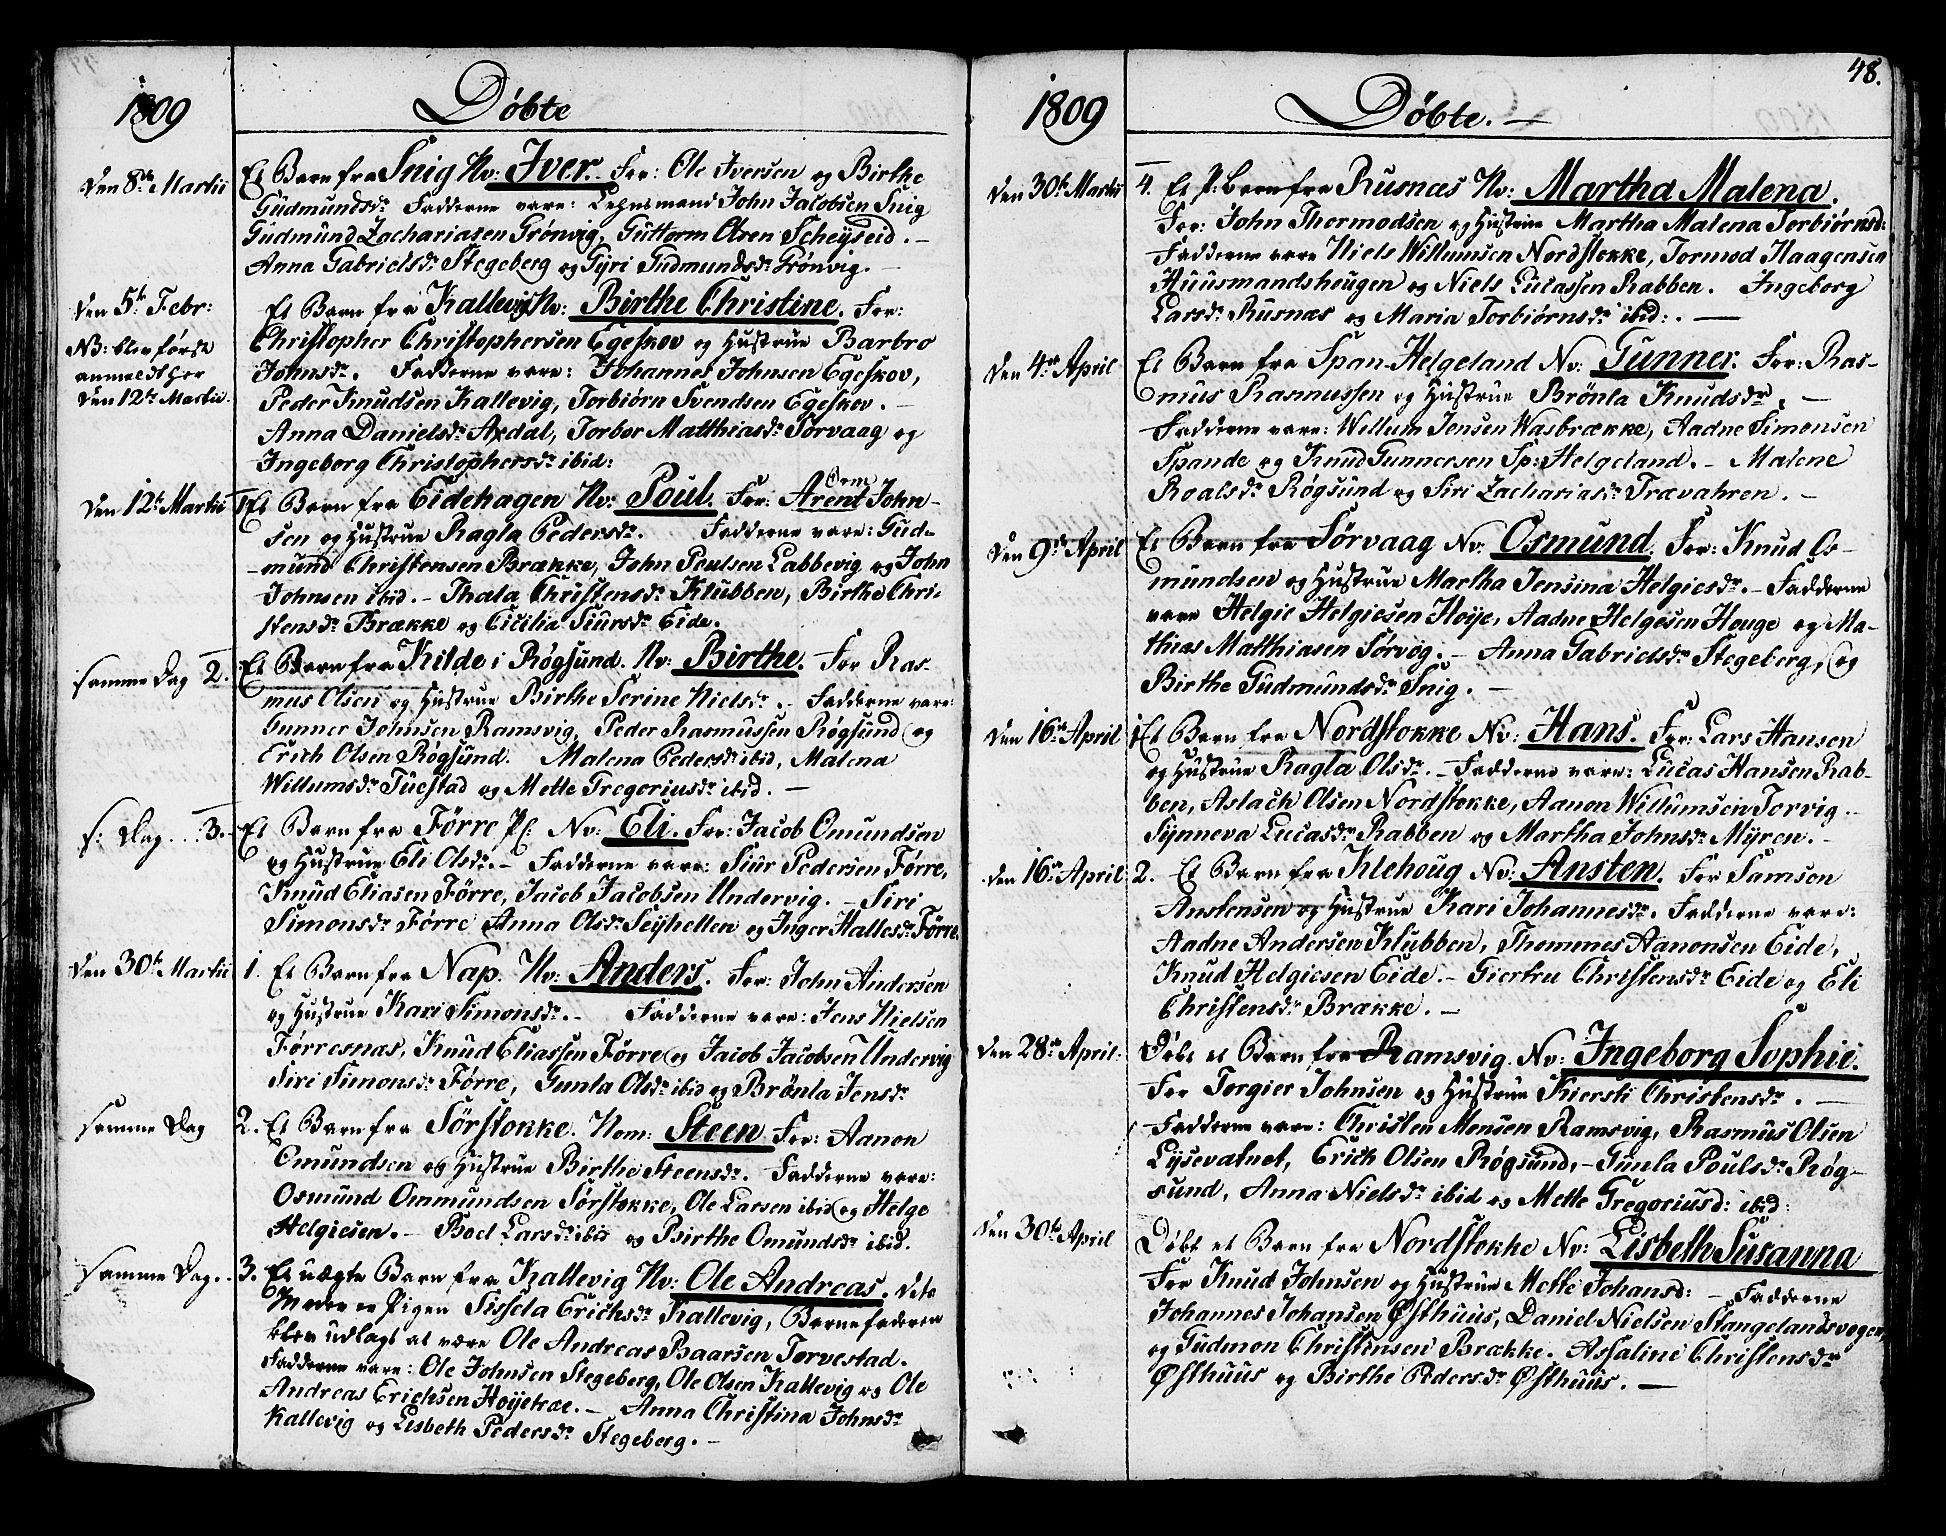 1809
Døbte
Den 8de Martii
Et Barn fra Snig Nv: Iver. For: Ole Iversen og Birthe
Gudmundsdr. Fadderne vare: Lehnsmand John Jacobsen Snig
Gudmund Zachariasen Grønvig, Guttorm Olsen Scheyseid. –
Anna Gabrielsdr Stegeberg og Gyri Gudmundsdr Grønvig. –
Den 5te Febr:
NB: blev først
anmeldt her
Den 12te Martii.
Et Barn fra Kallevig Nv: Birthe Christine. For:
Christopher Christophersen Egeskov og Hustrue Barbro
Johnsdr. Fadderne vare: Johannes Johnsen Egeskov,
Peder Knudsen Kallevig, Torbiørn Svendsen Egeskov. –
Anna Danielsdr Axdal, Torbor Matthiasdr Sørvaag og
Ingeborg Christophersdr ibid:
Den 12te Martii
1. Et Barn fra Eidehagen Nv: Poul. For: Arent Orm John-
sen og Hustrue Ragla Pedersdr. Fadderne vare: Gud-
mund Christensen Brække, John Poulsen Labbevig og John
Johnsen ibid. – Thala Christensdr Klubben, Birthe Chri-
stensdr Brække og Cicilia Siursdr Eide.
samme Dag 2.
Et Barn fra Kilde i Røgsund. Nv: Birthe. For Ras-
mus Olsen og Hustrue Birthe Serine Nielsdr. – Fadderne vare:
Gunner Johnsen Ramsvig, Peder Rasmussen Røgsund og
Erich Olsen Røgsund. Malena Pedersdr ibid, Malena
Willumsdr Tuestad og Mette Gregoriusdr ibid. –
s: Dag . . 3.
Et Barn fra Førre Pl: Nv: Eli. For: Jacob Omundsen
og Hustrue Eli Olsdr. – Fadderne vare: Siur Pedersen Førre,
Knud Eliasen Førre, Jacob Jacobsen Undervig. – Siri
Simonsdr Førre Anna Olsdr Seyhellen og Inger Hallesdr Førre.
Den 30te Martii
1. Et Barn fra Nap. Nv: Anders. For: John Andersen
og Hustrue Kari Simonsdr. – Fadderne vare: Jens Nielsen
Førresnæs, Knud Eliassen Førre og Jacob Jacobsen Undervig
Siri Simonsdr Førre, Gunla Olsdr ibid og Brønla Jensdr
samme Dag
2. Et Barn fra Sørstokke. Nom: Steen For: Aanon
Omundsen og Hustrue Birthe Steensdr. Fadderne vare:
Osmund Ommundsen Sørstokke, Ole Larsen ibid og Helge
Helgiesen. – Boel Larsdr ibid og Birthe Omundsdr ibid.
samme Dag. .
3. Et uægte Barn fra Kallevig Nv: Ole Andreas. Dets
Moder er Pigen Sissela Erichsdr Kallevig, Barnefaderen
blev udlagt at være Ole Andreas Baarsen Torvestad.
Fadderne vare: Ole Johnsen Stegeberg, Ole Olsen Kallevig og Ole
Andreas Erichsen Høyetræe. – Anna Christina Johnsdr
Kallevig og Lisbeth Pedersdr Stegeberg. –
48.
1809
Døbte. –
Den 30te Martii
4. Et P: Barn fra Rusnæs Nv: Martha Malena.
For: John Thormodsen og Hustrue Martha Malena Torbiørnsd:
Fadderne vare Niels Willumsen Nordstokke, Tormod Haagensen
Huusmandshougen og Niels Lucassen Rabben. Ingeborg
Larsdr Rusnæs og Maria Torbiørnsdr ibid: . –
Den 4de April
Et Barn fra Span-Helgeland Nv: Gunner. For: Ras-
mus Rasmussen og Hustrue Brønla Knudsdr. –
Fadderne vare: Willum Jensen Wasbrække, Aadne Simonsen
Spande og Knud Gunnersen Sp: Helgeland. – Malene
Roalsdr Røgsund og Siri Zachariasdr Trævahren. –
Den 9de April
Et Barn fra Sørvaag Nv: Osmund. For: Knud Os-
mundsen og Hustrue Martha Jensina Helgiesdr. – Fadderne
vare Helgie Helgiesen Høye, Aadne Helgesen Houge og Ma-
thias Matthiasen Sørvøg. – Anna Gabrielsdr Stegeberg, og
Birthe Gudmundsdr Snig. –
Den 16de April
1 Et Barn fra Nordstokke Nv: Hans. For: Lars Hansen
og Hustrue Ragla Olsdr. – Fadderne vare: Lucas Hansen Rab-
ben, Aslach Olsen Nordstokke, Aanon Willumsen Torvig. –
Synneva Lucasdr Rabben og Martha Johnsdr Myren. –
Den 16de April
2. Et Barn fra Klehoug Nv: Ansten. For Samson
Anstensen og Hustrue Kari Johannesdr. Fadderne vare:
Aadne Andersen Klubben, Thommes Aanonsen Eide,
Knud Helgiesen Eide. – Giertru Christensdr Eide og Eli
Christensdr Brække. –
Den 28de April:
Døbt et Barn fra Ramsvig. Nv: Ingeborg Sophie.
For Torgier Johnsen og Hustrue Kiersti Christensdr. –
Fadderne vare: Christen Monsen Ramsvig, Rasmus Olsen
Lysevatnet, Erick Olsen Røgsund, – Gunla Poulsdr Røg-
sund, Anna Nielsdr ibid og Mette Gregoriusd: ibid:
Den 30te April
Døbt et Barn fra Nordstokke Nv: Lisbeth Susanna
For Knud Johnsen og Hustrue Mette Johansd: – Fadderne
Johannes Johansen Østhuus, Daniel Nielsen Stangelandsvogen,
og Gudmon Christensen Brække. Assaline Christensdr
Østhuus og Birthe Pedersdr Østhuus. –